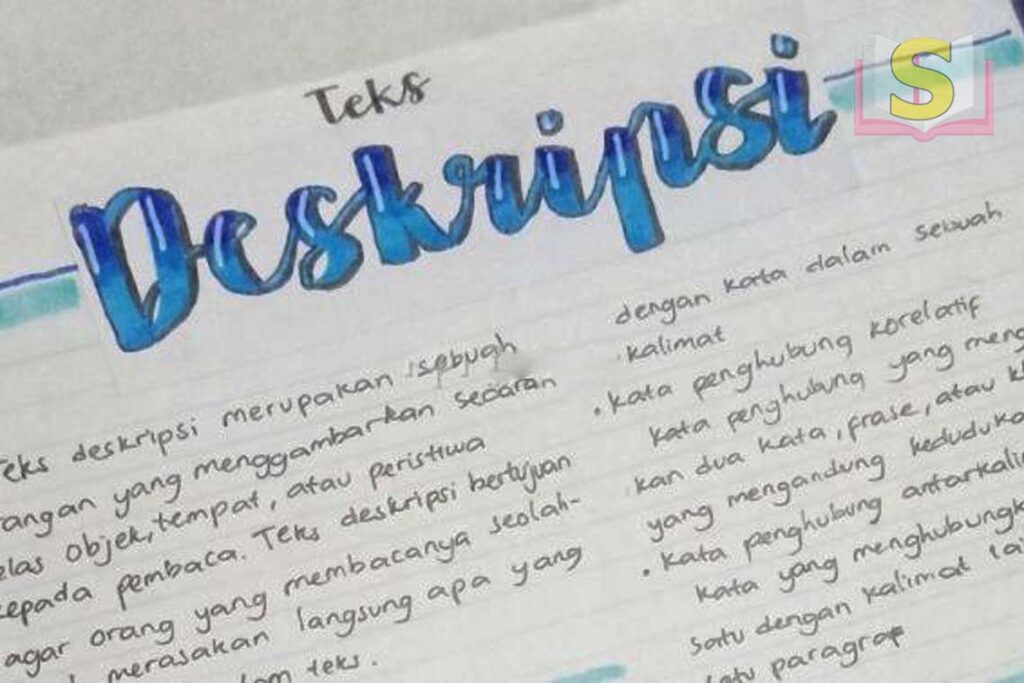 Teks
Deskripsi
S
Teks deskripsi merupakan sebuah
angan yang menggambarkan secaran
elas objek, tempat, atau peristiwa
kepada pembaca. Teks deskripsi bertujuan
agar orang yang membacanya seolah-
merasakan langsung apa yang
teks.
dengan kata dalam sebuah
kalimat
• kata penghubung korelatif
kata penghubung yang meng
kan dua kata, frase, atau kl
yang mengandung keduduka
• kata penghubung antarkalim
kata yang menghubungk
satu dengan kalimat lai
satu paragraf